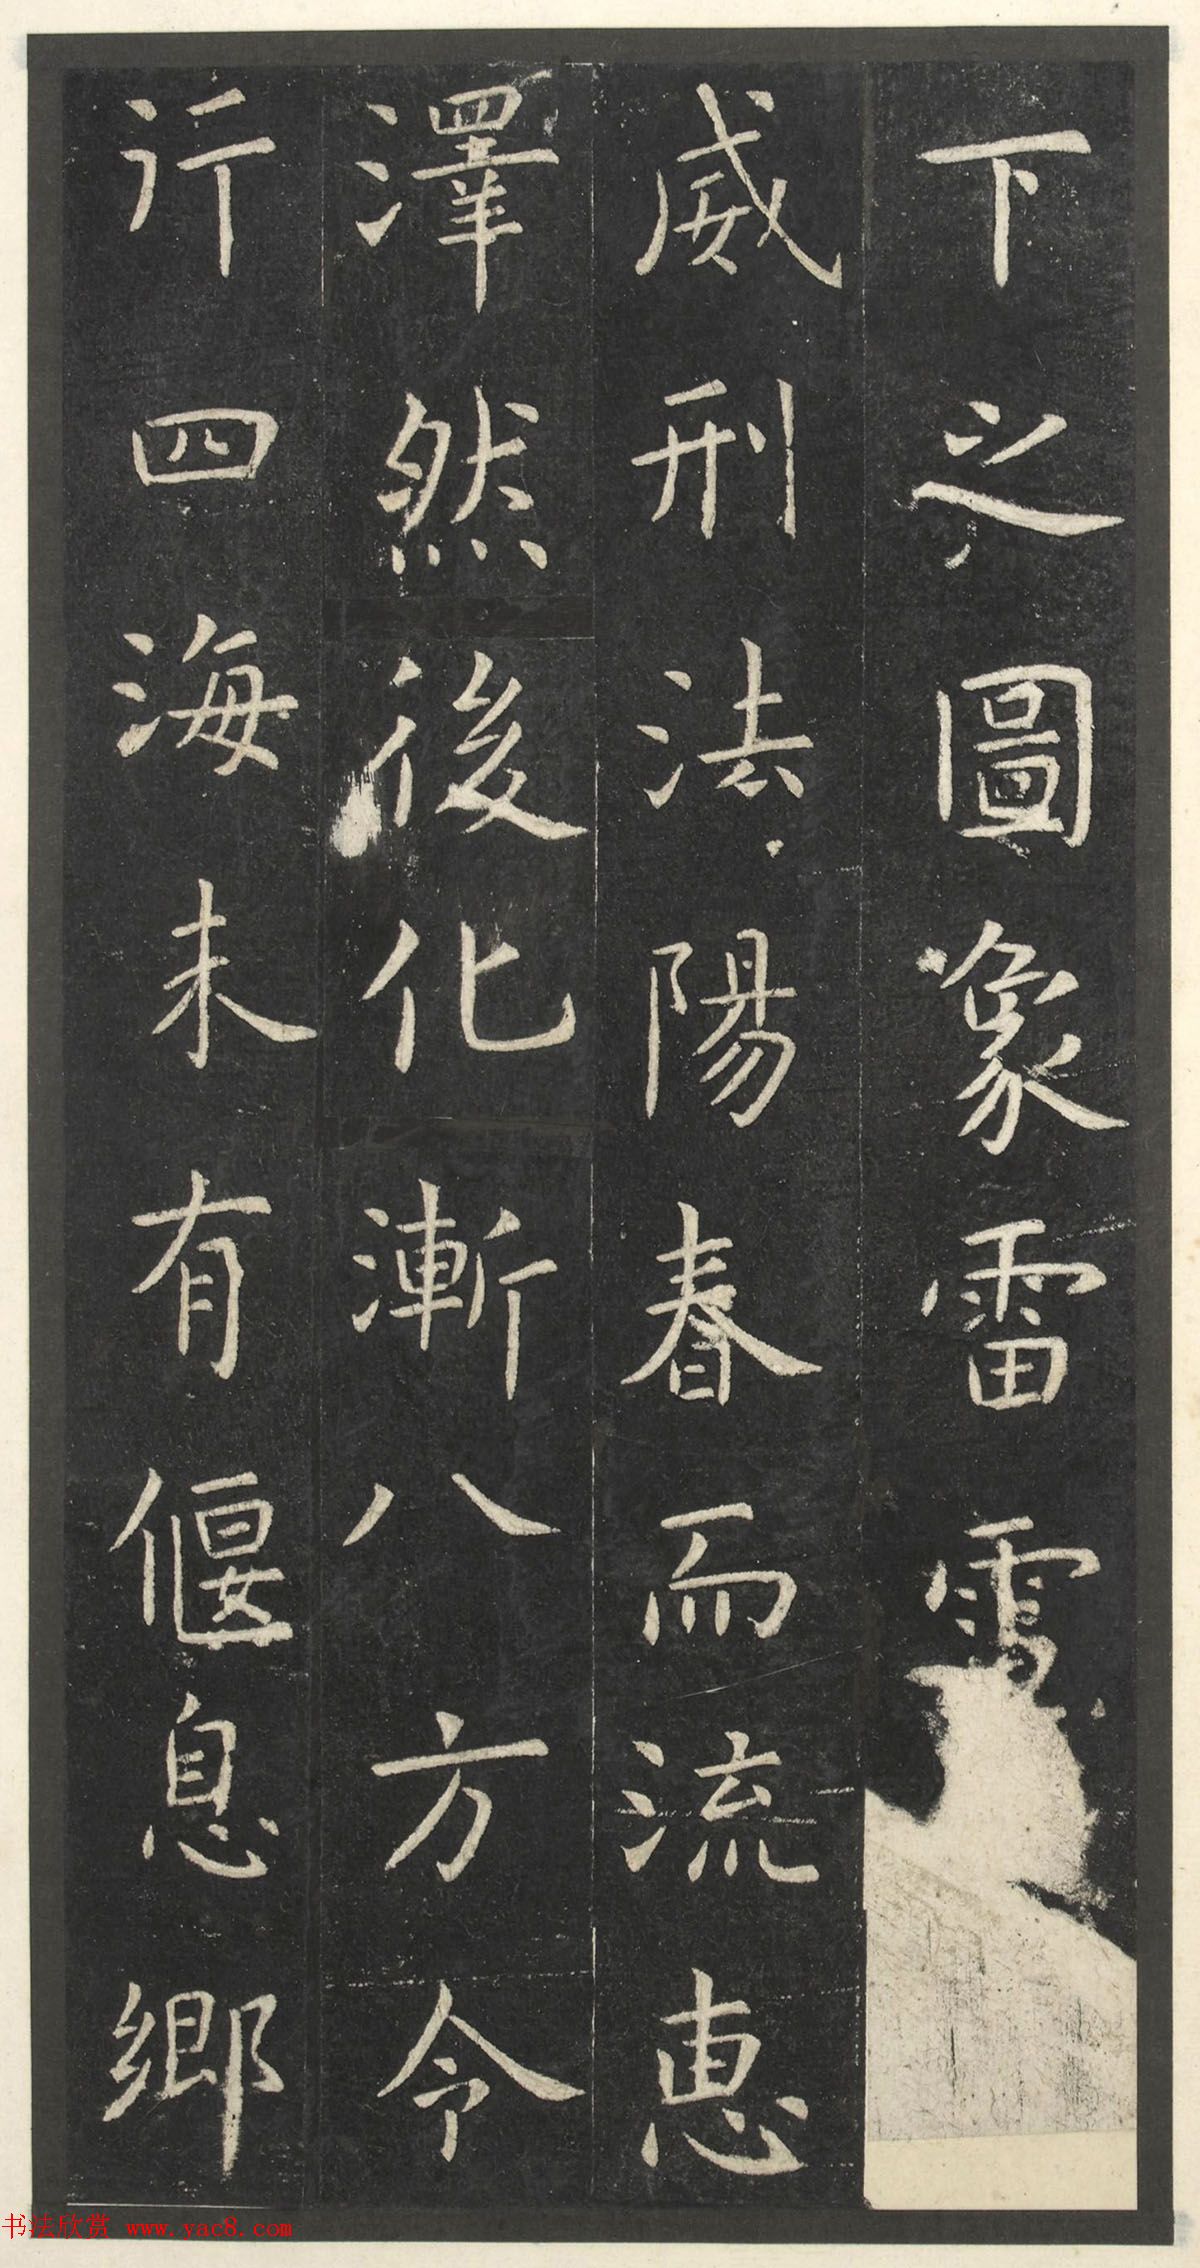 下之圖象雷電
威刑法陽春而流惠
澤然後化漸八方令
行四海未有偃息鄉
书法欣赏 www.yac8.com